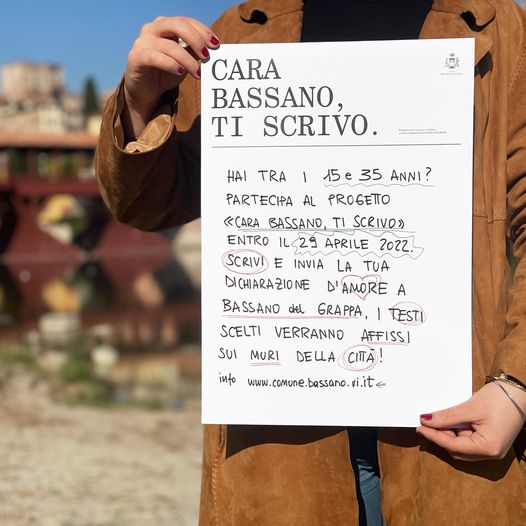 CARA
BASSANO,
TI SCRIVO.
HAI TRA I 15 e 35 ANNI?
PARTECIPA AL PROGETTO
«CARA BASSANO, TI SCRIVO»
ENTRO IL 29 APRILE 2022.
SCRIVI E INVIA LA TUA
DICHIARAZIONE D'AMORE A
BASSANO del GRAPPA, I TESTI
SCELTI VERRANNO AFFISSI
SUI MURI DELLA CITTÀ!
info www.comune.bassano.vi.it